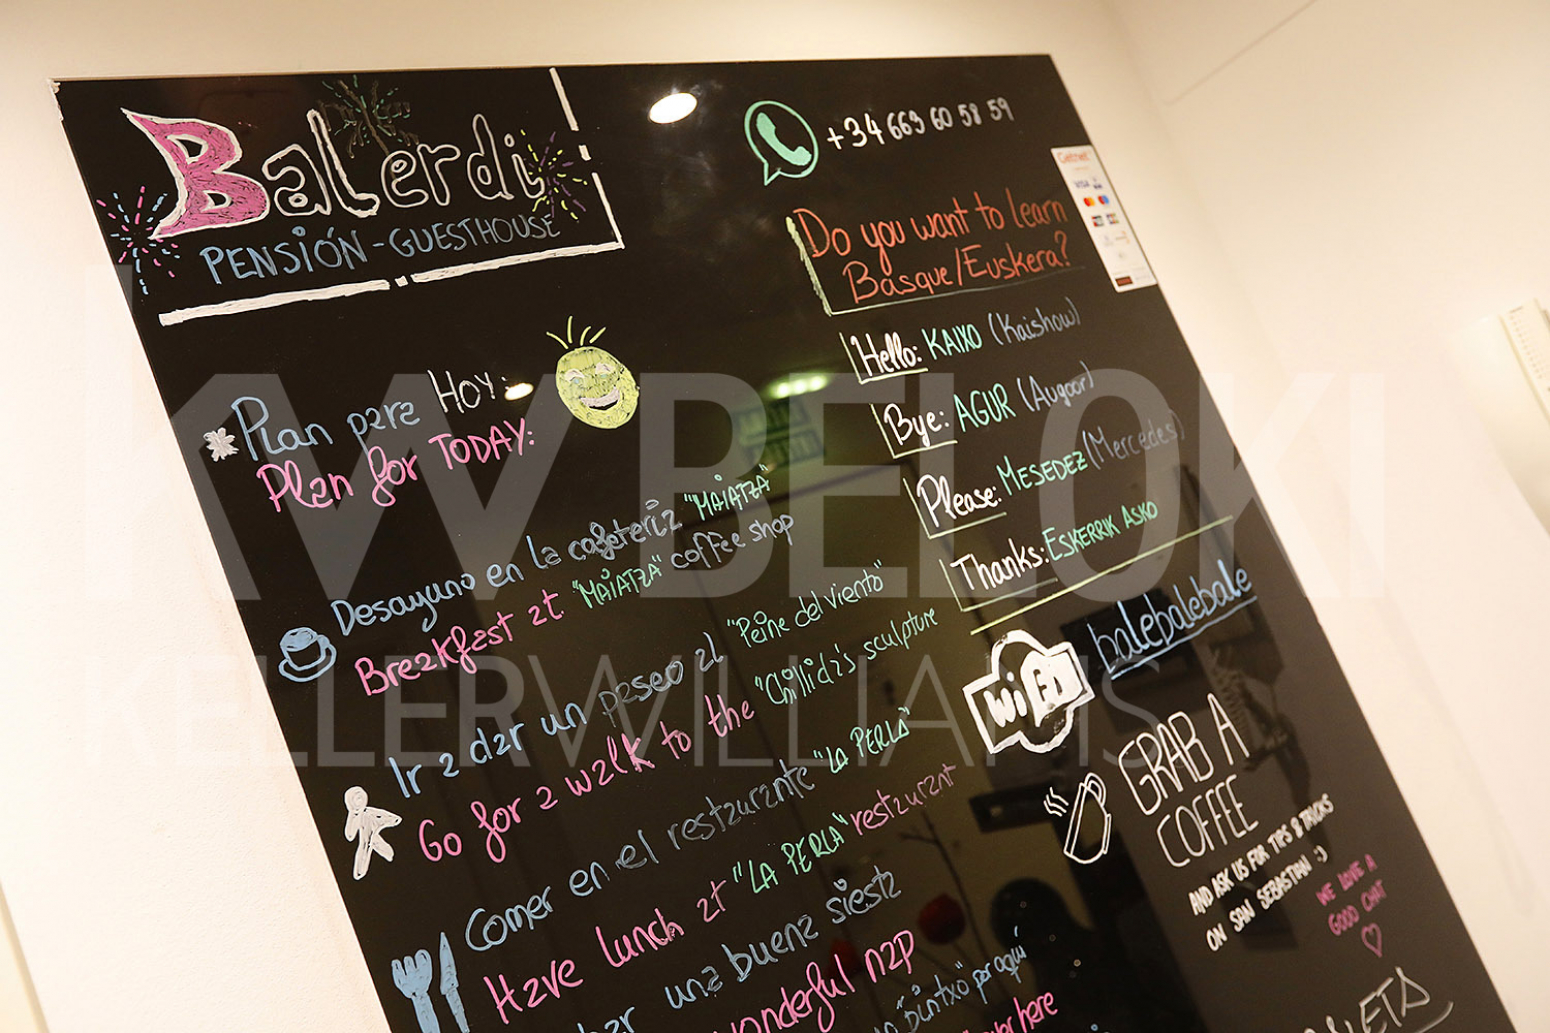 Balerdi
PENSIÓN - GUESTHOUSE
+34 669 60 58 59
Getnet
VISA
Do you want to learn
Basque/Euskera?
Hello: KAIXO (Kaishow)
Bye: AGUR (Augoor)
Please: MESEDEZ (Mercedes)
Thanks: ESKERRIK ASKO
WiFi
balebalebale
GRAB A
COFFEE
AND ASK US FOR TIPS & TRICKS
ON SAN SEBASTIAN :)
WE LOVE A
GOOD CHAT
Plan para HOY:
Plan for TODAY:
Desayuno en la cafetería "MAIATZA"
Breakfast at "MAIATZA" coffee shop
Ir a dar un paseo al "Peine del viento"
Go for a walk to the "Chillida's sculpture
Comer en el restaurante "LA PERLA"
Have lunch at "LA PERLA" restaurant
una buena siesta
wonderful nap
"pintxo" por aquí
here
KW BELOKI
KELLERWILLIAMS